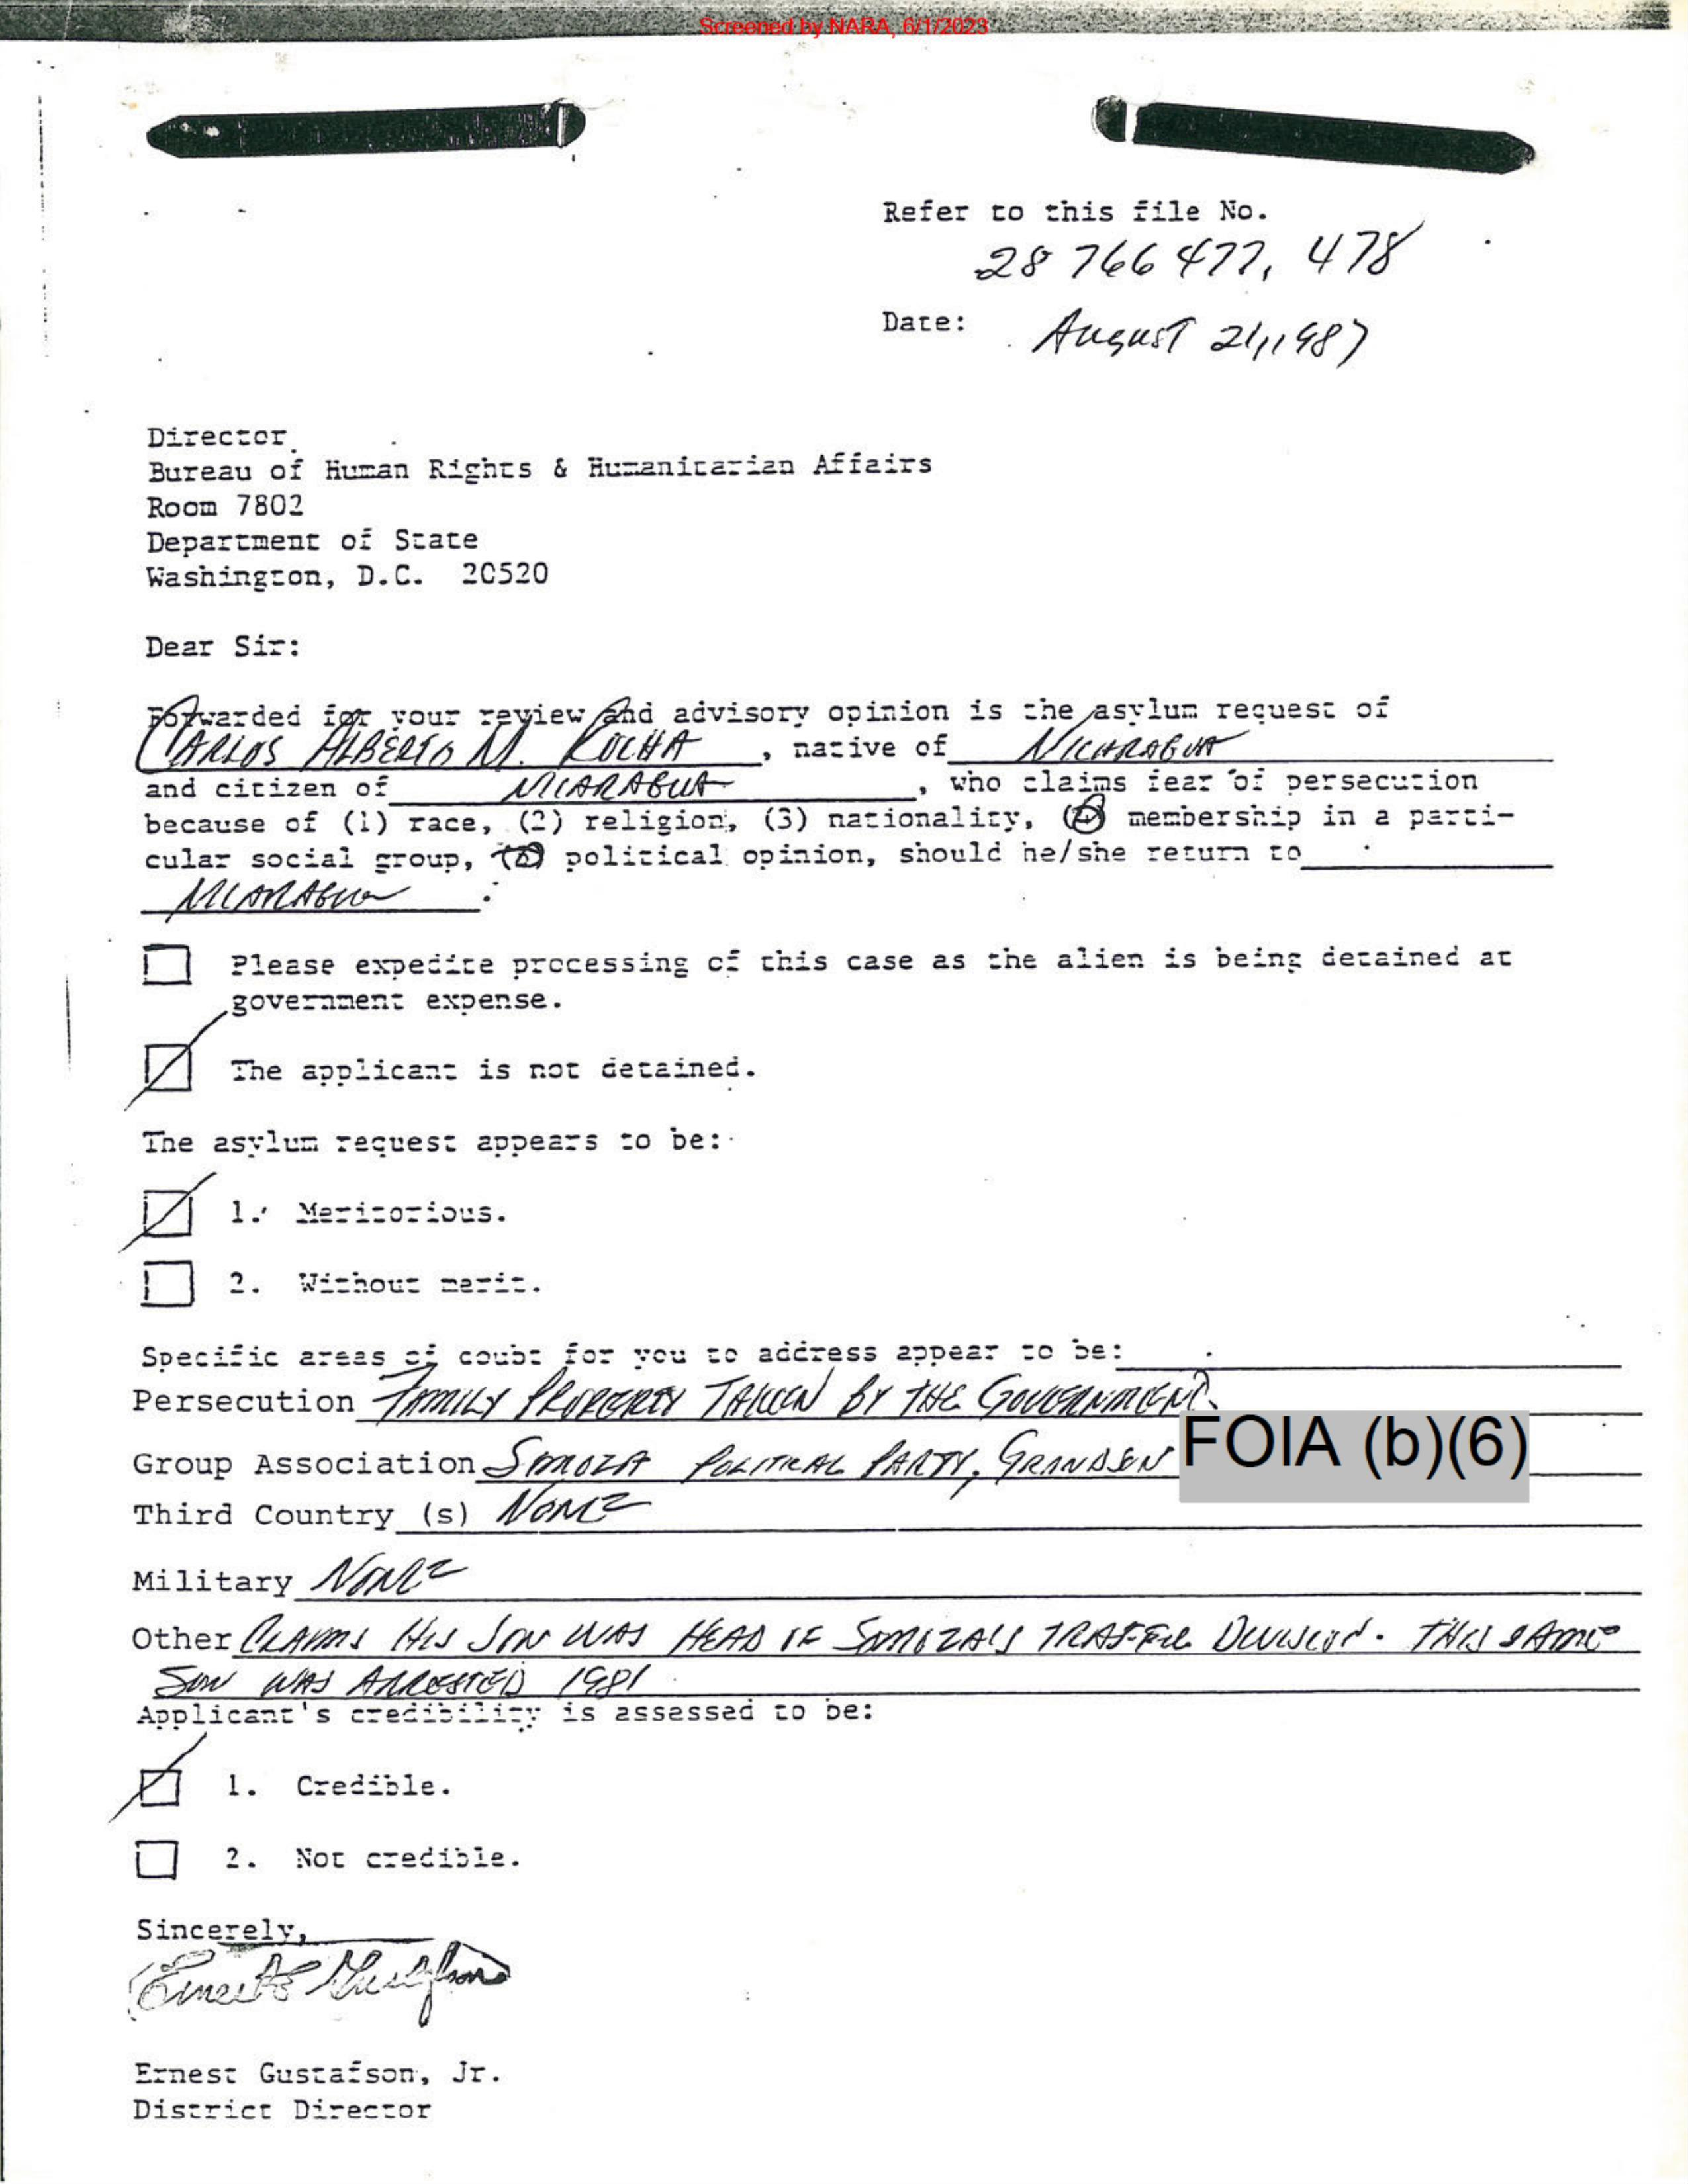 Screened by NARA, 6/1/2023
Refer to this file No.
28 766 477, 478
Date: August 21, 1987
Director
Bureau of Human Rights & Humanitarian Affairs
Room 7802
Department of State
Washington, D.C. 20520
Dear Sir:
Forwarded for your review and advisory opinion is the asylum request of
CARLOS ALBERTO M. ROCHA, native of NICARAGUA
and citizen of NICARAGUA, who claims fear of persecution
because of (1) race, (2) religion, (3) nationality, (4) membership in a parti-
cular social group, political opinion, should he/she return to
NICARAGUA.
Please expedite processing of this case as the alien is being detained at
government expense.
The applicant is not detained.
The asylum request appears to be:
1. Meritorious.
2. Without merit.
Specific areas of doubt for you to address appear to be:
Persecution FAMILY PROPERTY TAKEN BY THE GOVERNMENT.
Group Association SOMOZA POLITICAL PARTY, GRANDSON FOIA (b)(6)
Third Country (s) NONE
Military NONE
Other CLAIMS HIS SON WAS HEAD OF SOMOZA'S TRAFFIC DIVISION. THIS SAME
SON WAS ARRESTED 1981
Applicant's credibility is assessed to be:
1. Credible.
2. Not credible.
Sincerely,
Ernest Gustafson
Ernest Gustafson, Jr.
District Director